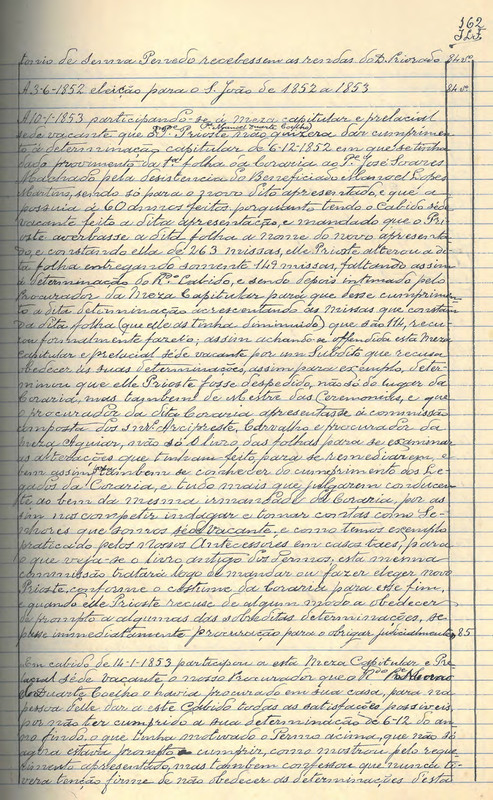 162
tonio de Senna Penedo recebessem as rendas do D. Priorado 84 vº
A 3-6-1852 eleição para o S. João de 1852 a 1853 84 vº
A 10-1-1853 participando-se á Meza capitular e prelacial
Pe Manuel Duarte Coelho
séde vacante que o Prioste não quizera dar cumprimen-
to á determinação capitular de 6-12-1852 em que se tinha
dado provimento da folha da Coraria ao Pe José Soares
Machado pela desistencia do Beneficiado Manoel Lopes
Martins, sendo só para o novo dito apresentado, e que a
possuia á 60 annos feitos, porquanto tendo o Cabido séde
vacante feito a dita apresentação, e mandado que o Pri-
oste averbasse a dita folha a nome do novo apresenta-
do, e constando ella de 263 missas, elle Prioste alterou a di-
ta folha entregando somente 149 missas, faltando assim
á determinação do Rdo Cabido, e sendo depois intimado pelo
Procurador da Meza Capitular para que desse cumprimen-
to a dita determinação acrescentando as missas que consta-
va dita folha (que elle as tinha diminuido) que são 114, recu-
sou formalmente fazelo; assim achando-se offendida esta Meza
capitular e prelacial séde vacante por um Subdito que recusa
obedecer ás suas determinações, assim para exemplo, deter-
minou que elle Prioste fosse despedido, não só do lugar da
Coraria, mas tambem de Mestre das Ceremonias, e que
o procurador da dita Coraria apresentasse á commissão
composta dos snrs Arcipreste, Carvalho e procurador da
Meza Aguiar, não só o livro das folhas para se examinar
as alterações que tinham feito para se remediarem, e
bem assim tambem se conhecer do cumprimento dos Le-
gados da Coraria, e tudo mais que julgarem conducen-
te ao bem da mesma irmandade da Coraria, por as-
sim nos competir indagar e tomar contas como Se-
nhores que somos séde vacante, e como temos exemplo
praticado pelos nossos Antecessores em casos taes, para
o que veja-se o livro antigo dos Termos, esta mesma
commissão tratará logo de mandar ou fazer eleger novo
Prioste, conforme o costume da Coraria para este fim,
e quando elle Prioste recuse de algum modo a obedecer
de prompto a algumas das sobreditas determinações, se
passe immediatamente procuração para o obrigar judicialmente 85
Em cabido de 14-1-1853 participou a esta Meza Capitular e Pre-
lacial séde vacante o nosso Procurador que o Rdo Pe Manoel
Duarte Coelho o havia procurado em sua casa, para na
pessoa delle dar a este Cabido todas as satisfações possiveis,
por não ter cumprido a sua determinação de 6-12 do an-
no findo, o que tinha motivado o Termo acima, que não só
agora estava prompto a cumprir, como mostrou pelo reque-
rimento apresentado, mas tambem confessou que nunca ti-
vera tenção firme de não obedecer ás determinações desta